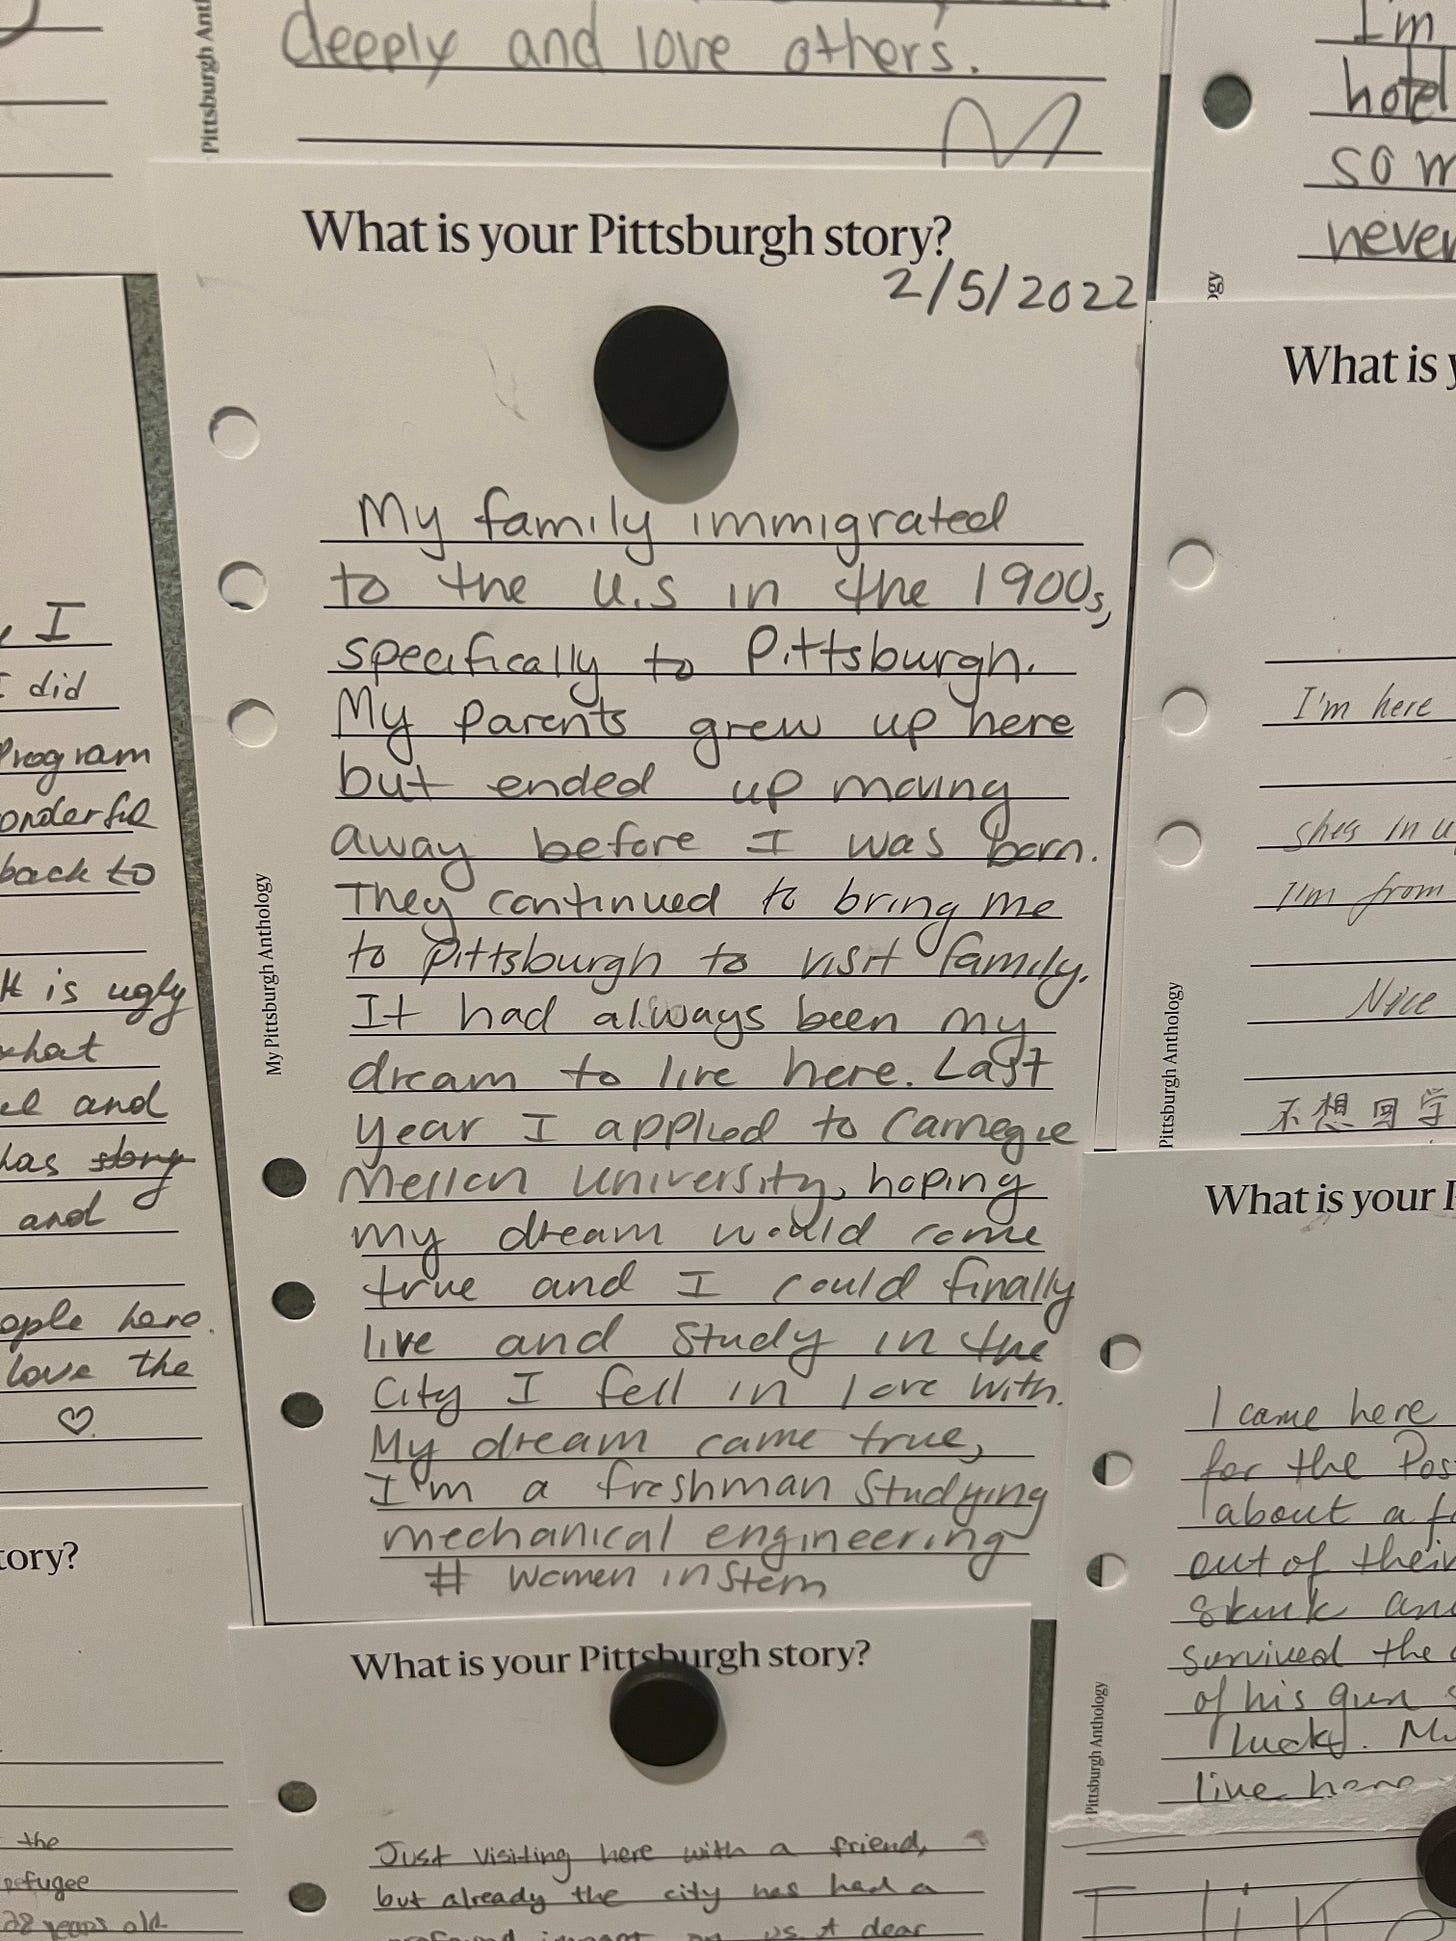 deeply and love others.
Pittsburgh Anth
I'm
hotel
so m
never
ogy
What is your Pittsburgh story?
2/5/2022
My family immigrated
to the U.S in the 1900s,
specifically to Pittsburgh.
My parents grew up here
but ended up moving
away before I was born.
They continued to bring me
to Pittsburgh to visit family.
It had always been my
dream to live here. Last
year I applied to Carnegie
Mellon University, hoping
my dream would come
true and I could finally
live and study in the
City I fell in love with.
My dream came true,
I'm a freshman studying
mechanical engineering
# Women in Stem
My Pittsburgh Anthology
I
I did
Program
onderful
back to
It is ugly
what
el and
has story
and
ople here.
love the
♡
What is y
I'm here
shes in u
I'm from
Nice
不想回学
Pittsburgh Anthology
What is your P
I came here
for the Pos
about a f
out of their
skunk and
survived the
of his gun s
luck. M
live here
Pittsburgh Anthology
I like
tory?
the
refugee
28 years old
What is your Pittsburgh story?
Just visiting here with a friend,
but already the city has had a
profound impact on us. A dear